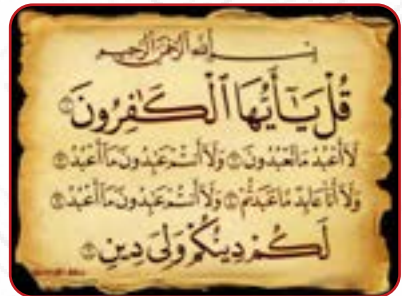 بِسْمِ ٱللَّهِ ٱلرَّحْمَٰنِ ٱلرَّحِيمِ
قُلْ يَٰٓأَيُّهَا ٱلْكَٰفِرُونَ ۝
لَآ أَعْبُدُ مَا تَعْبُدُونَ ۝ وَلَآ أَنتُمْ عَٰبِدُونَ مَآ أَعْبُدُ ۝
وَلَآ أَنَا۠ عَابِدٌ مَّا عَبَدتُّمْ ۝ وَلَآ أَنتُمْ عَٰبِدُونَ مَآ أَعْبُدُ ۝
لَكُمْ دِينُكُمْ وَلِىَ دِينِ ۝